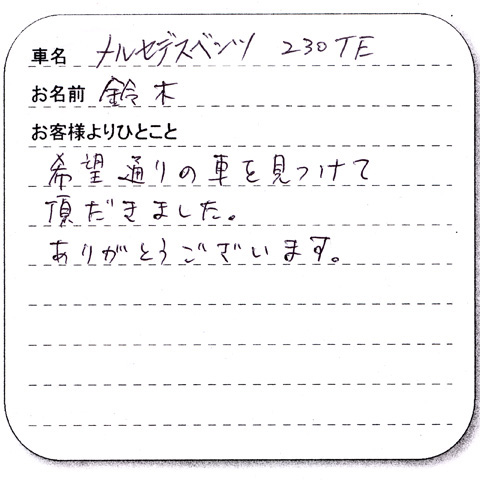 車名 メルセデスベンツ 230TE
お名前 鈴木
お客様よりひとこと
希望通りの車を見つけて
頂だきました。
ありがとうございます。